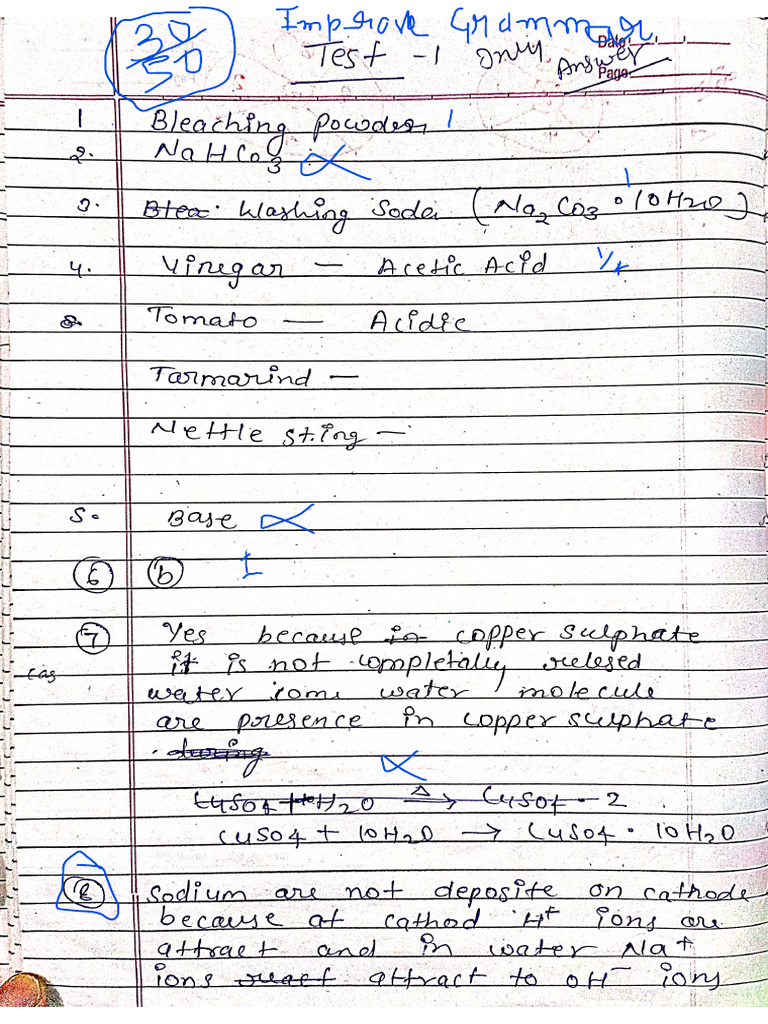 Improve Grammar
30/50
Test - 1 only Answer
Date:
Page
1 Bleaching powder 1
2. NaHCo3
3. Blea. Washing Soda (Na2Co3 • 10H2O) 1
4. Vinegar — Acetic Acid
Tomato — Acidic
Tarmarind —
Nettle sting —
5. Base
6 b 1
7 Yes because in copper sulphate
it is not completally relesed
water some water molecule
are presence in copper sulphate
during
CuSO4 + H2O Δ→ CuSO4 • 2
CuSO4 + 10H2O → CuSO4 • 10H2O
8 Sodium are not deposite on cathode
because at cathod H+ ions are
attract and in water Na+
ions react attract to OH− ions